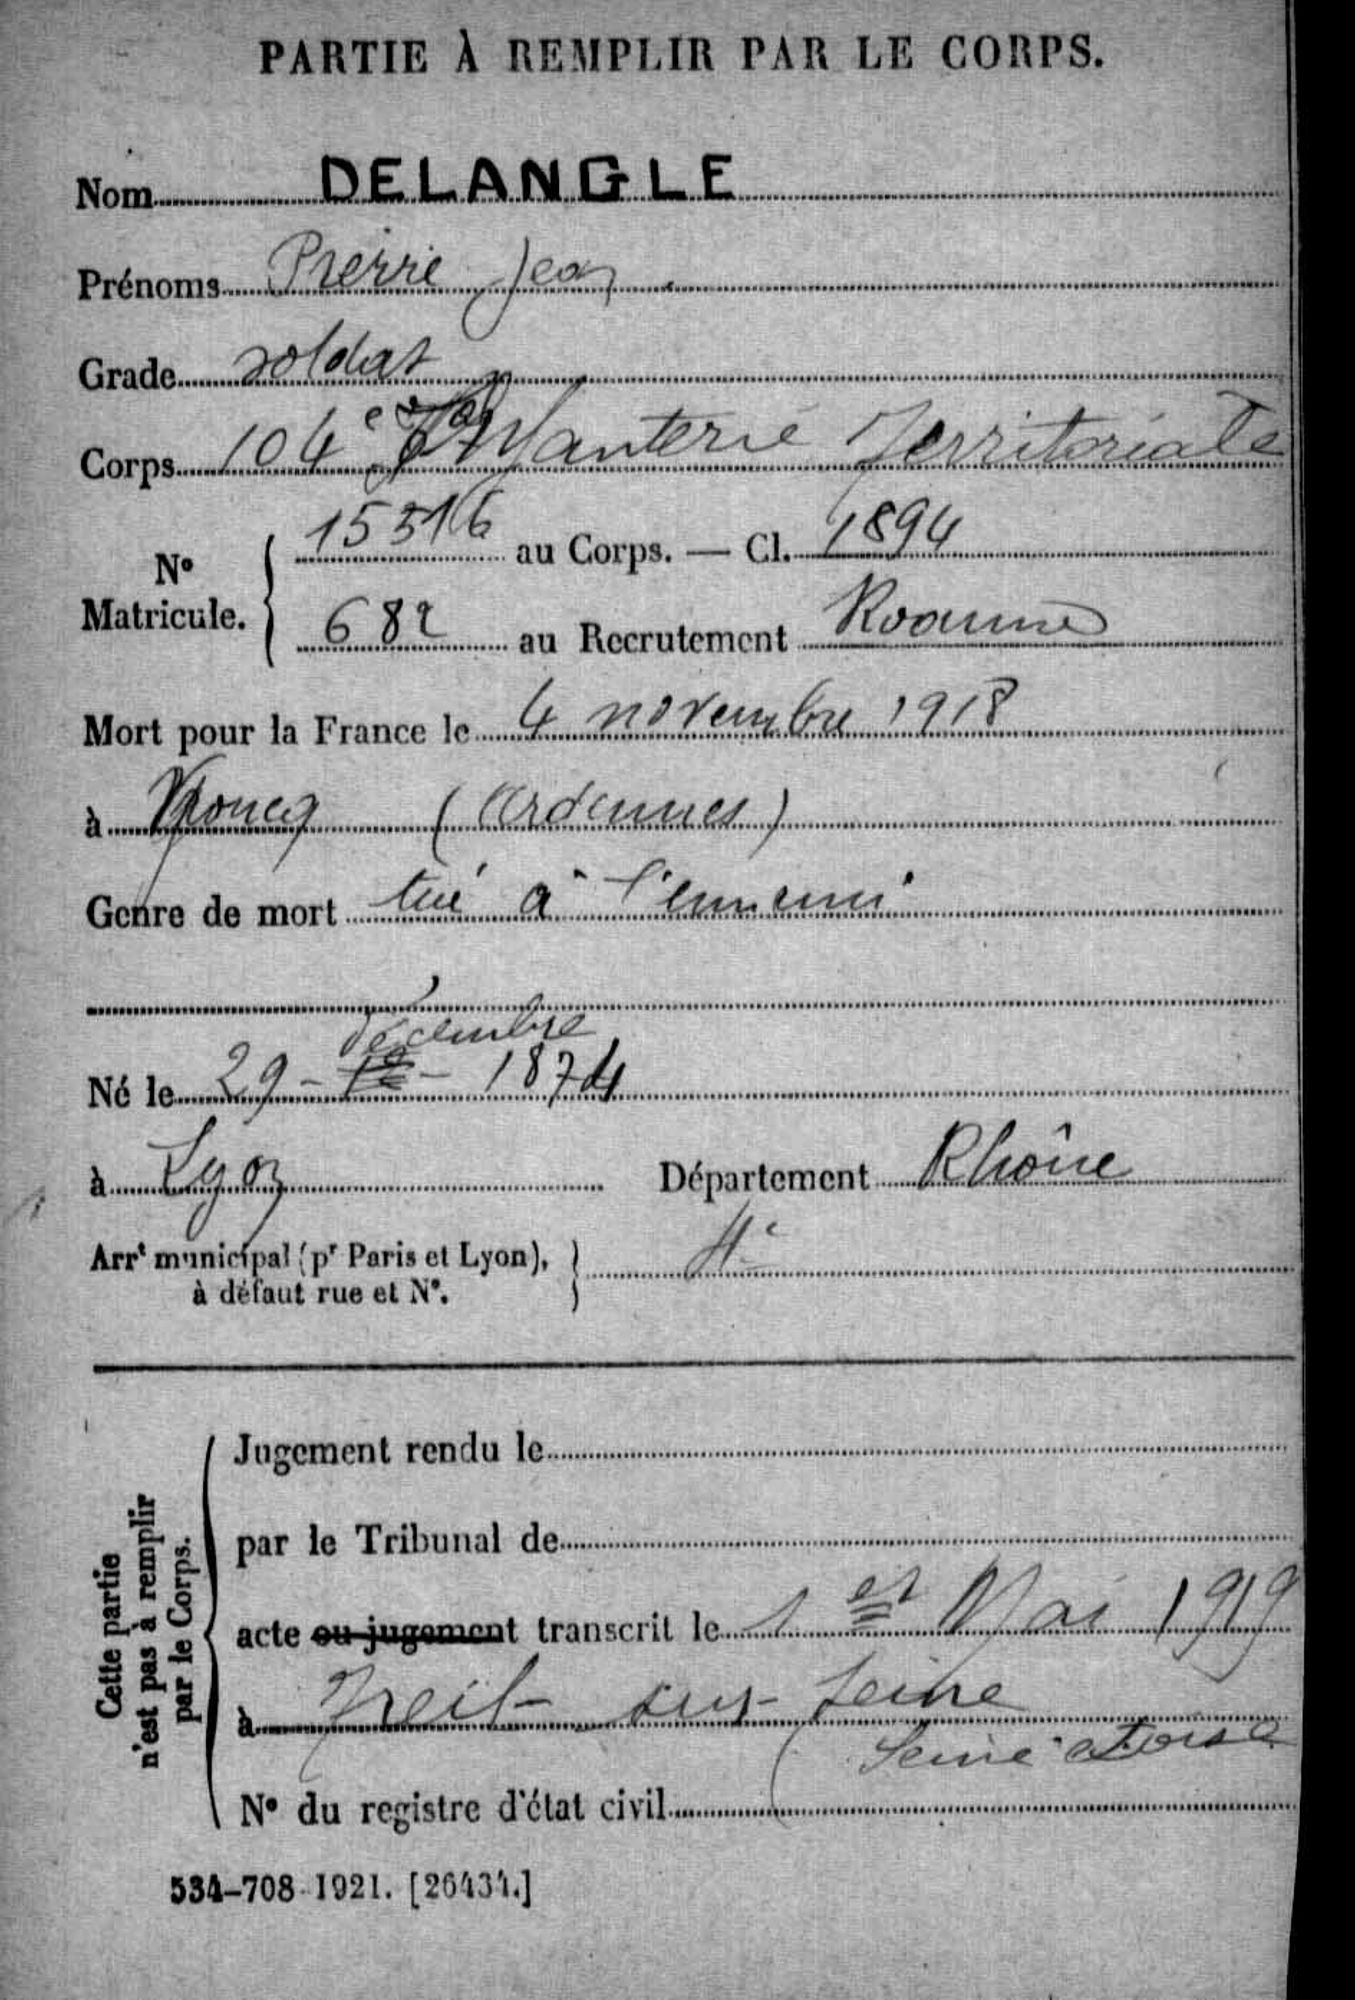 PARTIE À REMPLIR PAR LE CORPS.
Nom DELANGLE
Prénoms Pierre Jean
Grade soldat
Corps 104e Infanterie Territoriale
No Matricule. { 15516 au Corps. — Cl. 1894
682 au Recrutement Roanne
Mort pour la France le 4 novembre 1918
à Voncq (Ardennes)
Genre de mort tué à l'ennemi
décembre
Né le 29 - 12 - 1874
à Lyon Département Rhône
Arrt municipal (pr Paris et Lyon),
à défaut rue et No. } 4e
Cette partie
n'est pas à remplir
par le Corps.
Jugement rendu le
par le Tribunal de
acte ou jugement transcrit le 1er Mai 1919
à sur Seine
Seine et Oise
No du registre d'état civil
534-708-1921. [26434.]